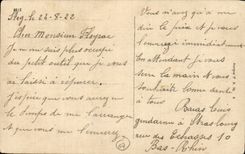 Stg. le 22-8-22
Cher Monsieur
Je me suis plus occupé
du petit outil que je vous
ai laissé à réparer.
J'espère que vous aurez eu
le temps de me l'arranger
et que vous me l'enverrez
Vous n'avez qu'à me
dire le prix et je vous
l'enverrai immédiatement
En attendant je vous
serre la main et vous
souhaite bonne santé
à tous
Louis
gendarme à Strasbourg
rue des Echasses 10
Bas-Rhin